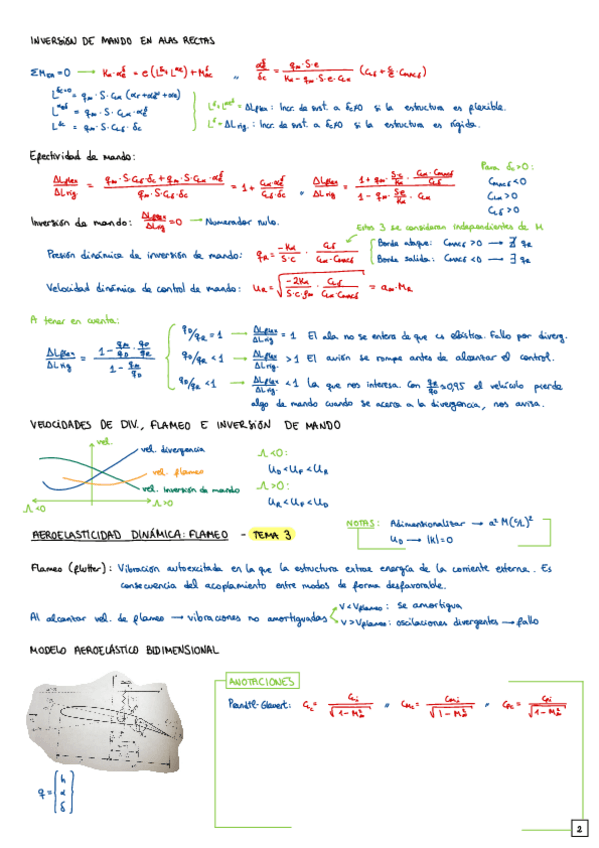 INVERSIÓN DE MANDO EN ALAS RECTAS
ΣM_EA = 0 → Kα·α_e^δ = e(L^δc + L^αe) + M_ac^δc ,, α_e^δ/δc = (q∞·S·e)/(Kα - q∞·S·e·CLα) (CLδ + c/e·Cmacδ)
L^δc=0 = q∞·S·CLα (αr + αe^r + α0)
L^αeδ = q∞·S·CLα·αe^δ
L^δc = q∞·S·CLδ·δc
L^δc + L^αeδ = ΔLflex : Incr. de sust. a δc≠0 si la estructura es flexible.
L^δ = ΔLrig. : Incr. de sust. a δc≠0 si la estructura es rígida.
Efectividad de mando:
Para δc>0:
Cmacδ<0
CLα>0
CLδ>0
ΔLflex/ΔLrig = (q∞·S·CLδ·δc + q∞·S·CLα·αe^δ)/(q∞·S·CLδ·δc) = 1 + (CLα·αe^δ)/(CLδ·δc) ,, ΔLflex/ΔLrig. = (1 + q∞·Sc/Kα · CLα·Cmacδ/CLδ)/(1 - q∞·Se/Kα · CLα)
Inversión de mando: ΔLflex/ΔLrig = 0 → Numerador nulo.
Estos 3 se consideran independientes de M
Presión dinámica de inversión de mando: qR = -Kα/(S·c) · CLδ/(CLα·Cmacδ)
Borde ataque: Cmacδ > 0 → ∄ qR
Borde salida: Cmacδ < 0 → ∃ qR
Velocidad dinámica de control de mando: UR = √(-2Kα/(S·c·ρ∞) · CLδ/(CLα·Cmacδ)) = a∞·MR
A tener en cuenta:
ΔLflex/ΔLrig = (1 - q∞/qD · qD/qR)/(1 - q∞/qD)
qD/qR = 1 → ΔLflex/ΔLrig. = 1 El ala no se entera de que es elástica. Fallo por diverg.
qD/qR < 1 → ΔLflex/ΔLrig. > 1 El avión se rompe antes de alcanzar el control.
qD/qR < 1 → ΔLflex/ΔLrig. < 1 La que nos interesa. Con qR/qD ≈ 0,95 el vehículo pierde
algo de mando cuando se acerca a la divergencia, nos avisa.
VELOCIDADES DE DIV., FLAMEO E INVERSIÓN DE MANDO
vel.
vel. divergencia
vel. flameo
vel. inversión de mando
Λ<0
Λ>0
Λ<0:
UD < UF < UR
Λ>0:
UR < UF < UD
AEROELASTICIDAD DINÁMICA: FLAMEO - TEMA 3
NOTAS: Adimensionalizar →
UD → |K|=0
Flameo (flutter): Vibración autoexcitada en la que la estructura extrae energía de la corriente externa. Es
consecuencia del acoplamiento entre modos de forma desfavorable.
Al alcanzar vel. de flameo → vibraciones no amortiguadas
V<Vflameo: se amortigua
V>Vflameo: oscilaciones divergentes → fallo
MODELO AEROELÁSTICO BIDIMENSIONAL
ANOTACIONES
Prandtl-Glauert: CLc = CLi/√(1-M∞²) ,, CMc = CMi/√(1-M∞²) ,, CPc = CPi/√(1-M∞²)
q = {h α δ}
2